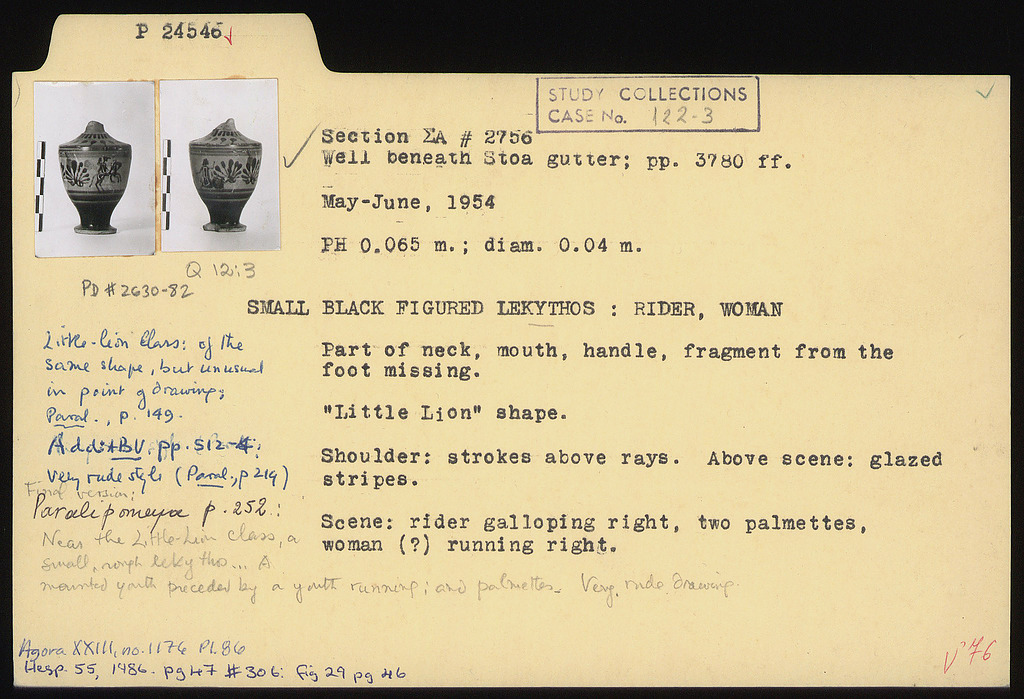 P 24546
STUDY COLLECTIONS
CASE No. 122-3
Section ΣA # 2756
Well beneath Stoa gutter; pp. 3780 ff.
May-June, 1954
PH 0.065 m.; diam. 0.04 m.
Q 12:3
PD # 2630-82
SMALL BLACK FIGURED LEKYTHOS : RIDER, WOMAN
Part of neck, mouth, handle, fragment from the
foot missing.
"Little Lion" shape.
Shoulder: strokes above rays. Above scene: glazed
stripes.
Scene: rider galloping right, two palmettes,
woman (?) running right.
Little-Lion Class: of the
same shape, but unusual
in point of drawing;
Paral., p. 149.
Addit BV, pp. 512-4;
very rude style (Paral., p 219)
Final version:
Paralipomena p. 252.:
Near the Little-Lion Class, a
small, rough lekythos... A
mounted youth preceded by a youth running; and palmettes. Very rude drawing.
Agora XXIII, no. 1176 Pl. 86
Hesp. 55, 1986. pg 47 # 306: fig 29 pg 46
V '76